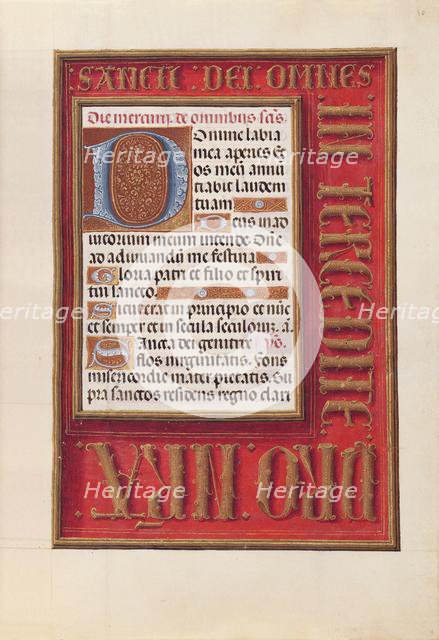 SANCTI DEI OMNES
IN TERCEDITE
PRO
Die mercurij. de omnibus scīs.
Domine labia
mea aperies Et
os meū annū
tiabit laudem
tuam
Deus in ad
iutorium meum intende. Dne
ad adiuvandū me festina
Gloria patri et filio et spiri
tui sancto.
Sicut erat in principio et nūc
et semper et in secula seculorū. a.
Sancta dei genitrix
flos virginitatis. Fons
misericordie mater pietatis. Su
pra sanctos residens regno clari
Heritage
Heritage
Heritage
Heritage
Heritage
Heritage
Heritage
Heritage